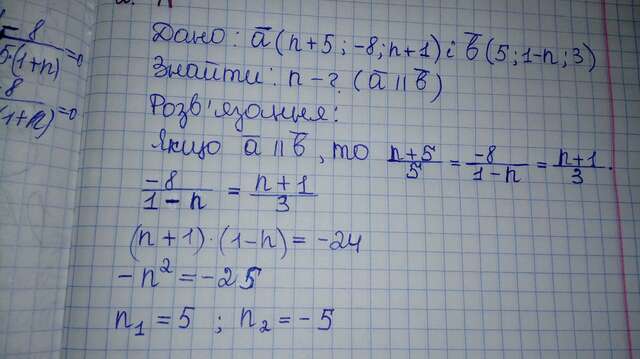 Дано: a̅(n+5; -8; n+1) і b̅(5; 1-n; 3)
Знайти: n-? (a̅ || b̅)
Розв'язання:
Якщо a̅ || b̅, то (n+5)/5 = -8/(1-n) = (n+1)/3.
-8/(1-n) = (n+1)/3
(n+1)·(1-n) = -24
-n² = -25
n₁ = 5 ; n₂ = -5